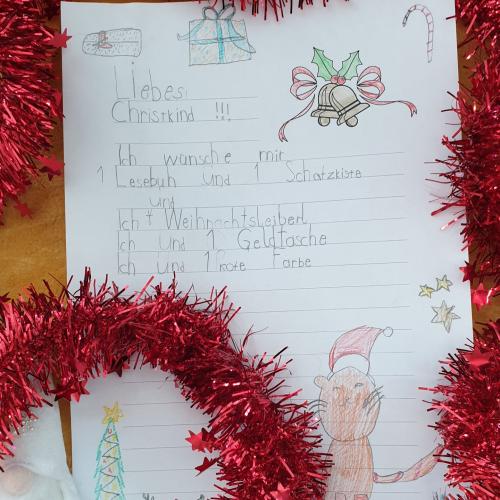 Liebes
Christkind !!!
Ich wünsche mir
1 Lesebuh und 1 Schatzkiste
und
Ich 1 Weihnachtsleiberl
Ich und 1 Geldtasche
Ich und 1 rote Farbe